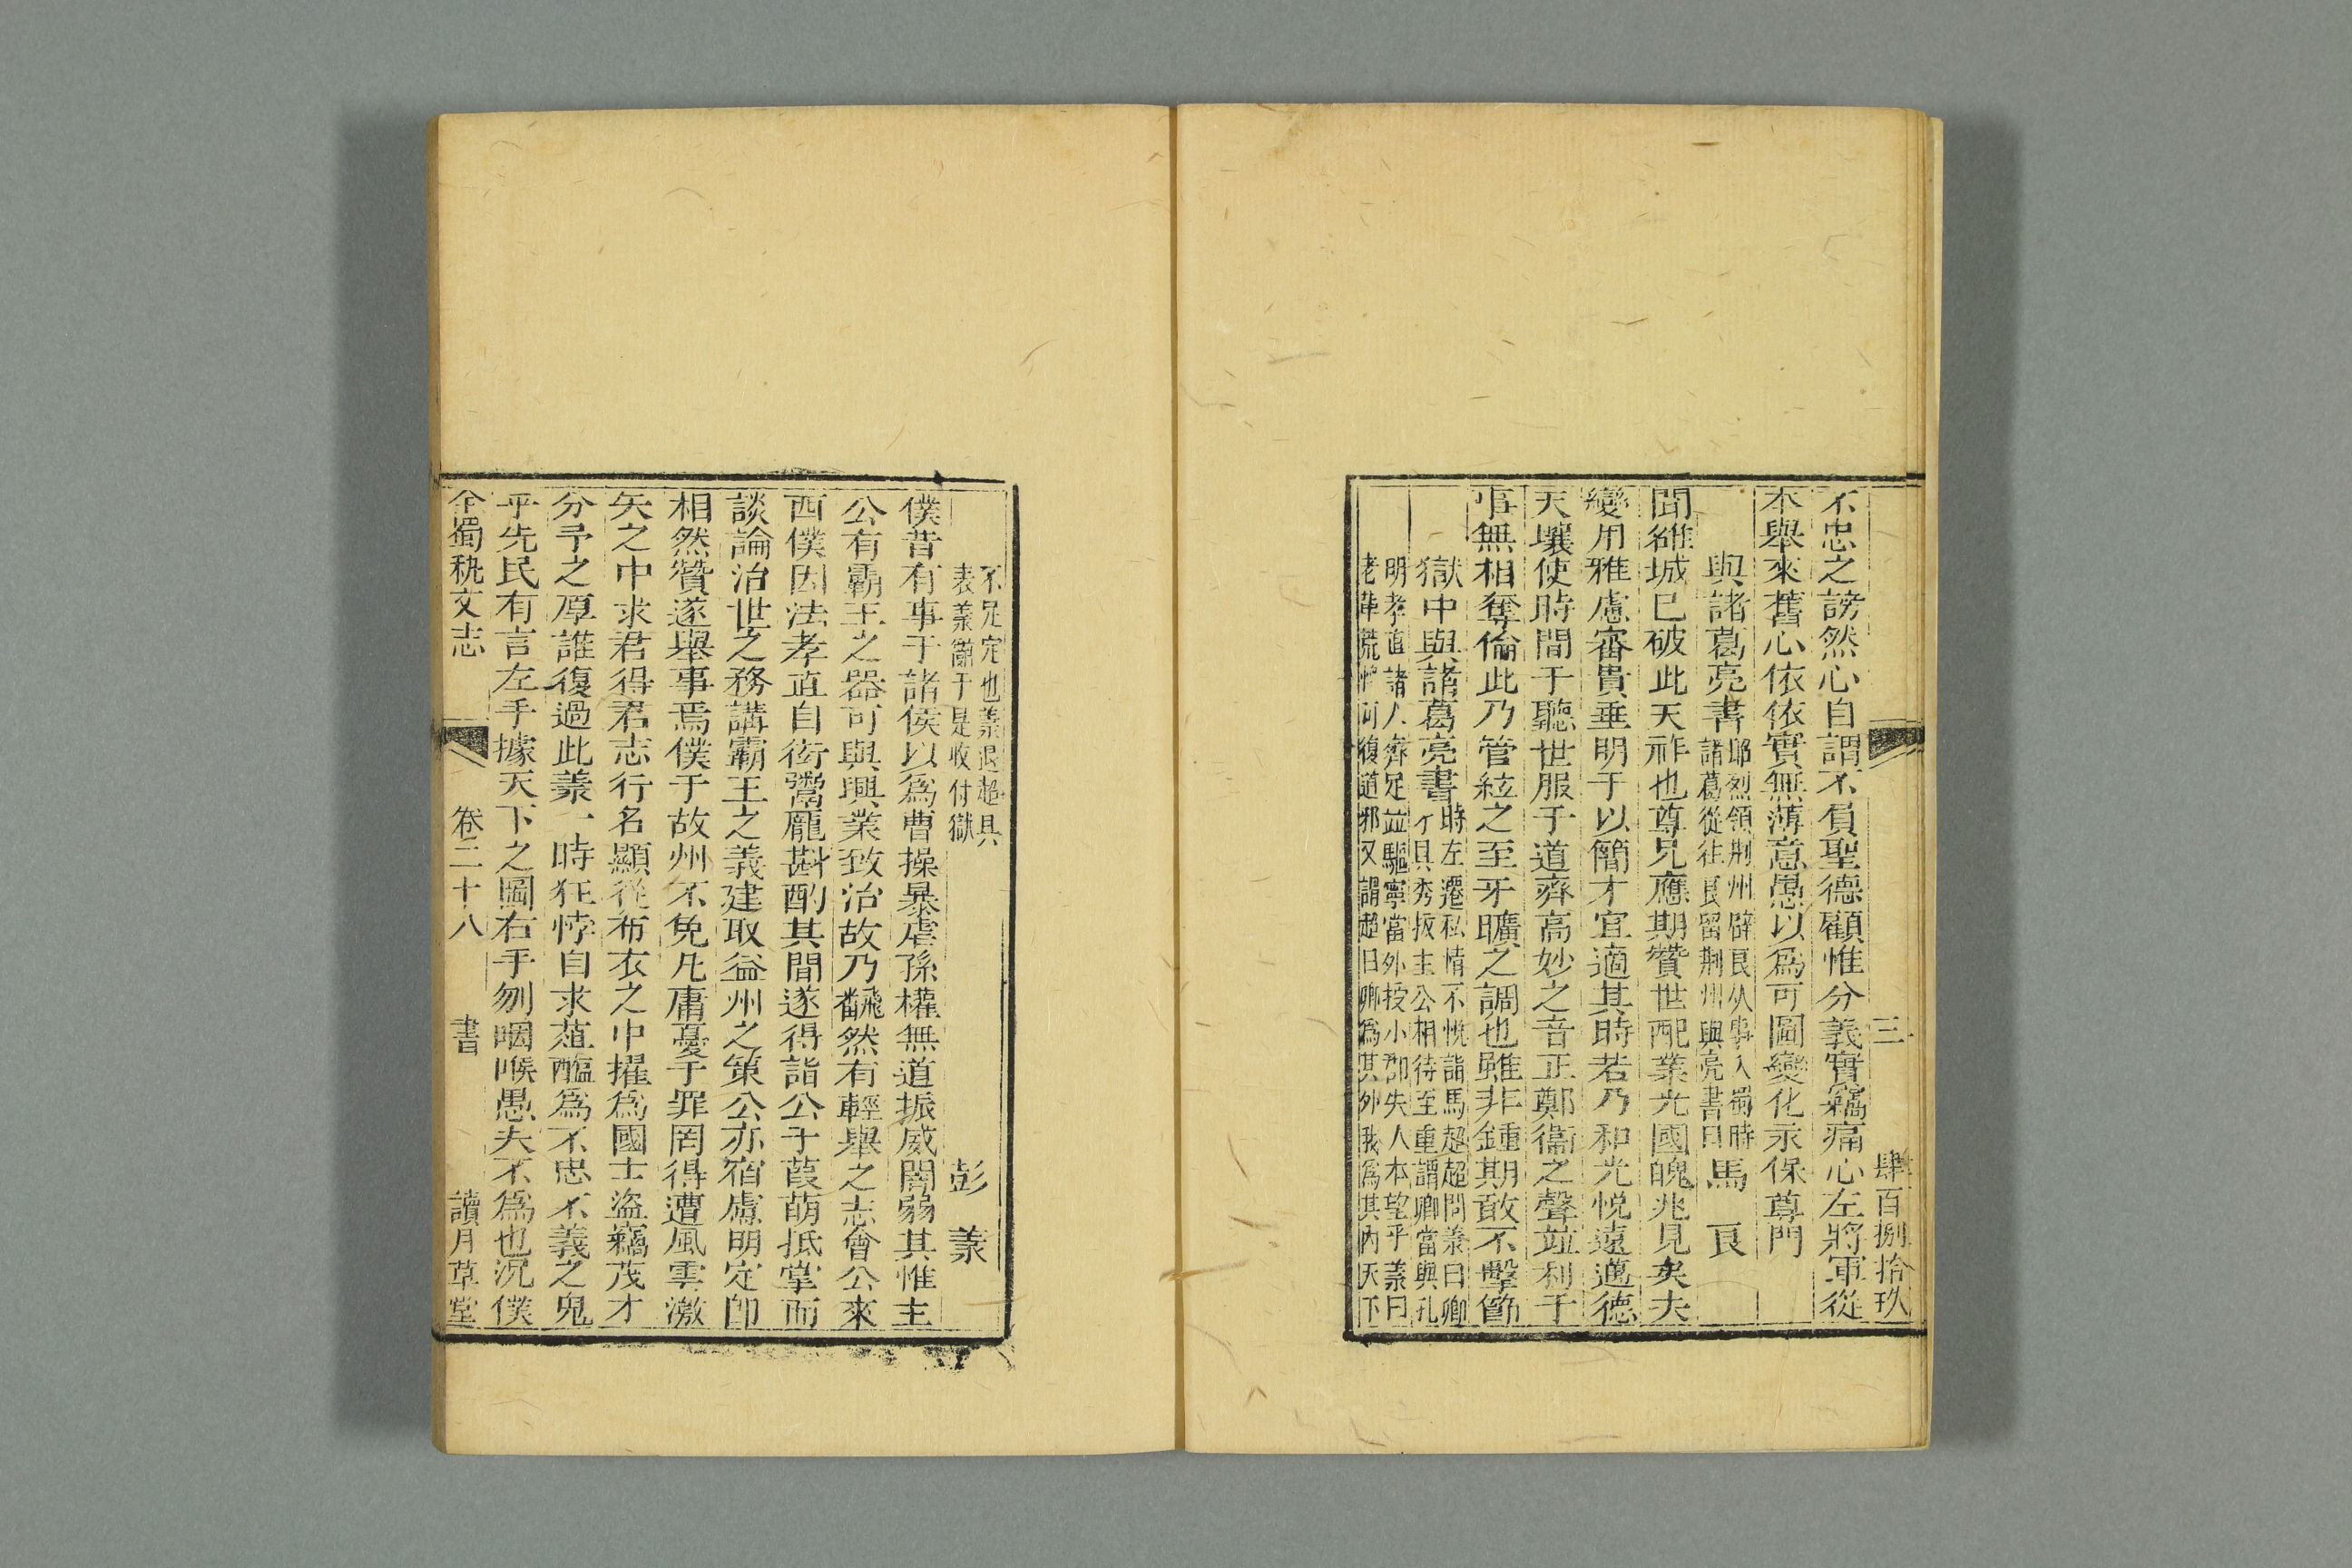 三　肆百捌拾玖
不忠之謗然心自謂不負聖德顧惟分義實竊痛心左將軍從
本舉來舊心依依實無薄意愚以爲可圖變化永保尊門
與諸葛亮書
耶烈領荆州辟良从事入蜀時
諸葛從往良留荆州與亮書曰
馬　良
聞雒城已破此天祚也尊兄應期贊世配業光國魄兆見矣夫
變用雅慮審貴垂明于以簡才宜適其時若乃和光悅遠邁德
天壤使時閒于聽世服于道齊高妙之音正鄭衞之聲竝利于
事無相奪倫此乃管絃之至牙曠之調也雖非鍾期敢不擊節
獄中與諸葛亮書
時左遷私情不悅詣馬超超問羕曰卿
才具秀拔主公相待至重謂卿當與孔
明孝直諸人齊足竝驅寧當外授小郡失人本望乎羕曰
老革荒悖可復道邪又謂超曰卿爲其外我爲其內天下
不足定也羕退超具
表羕辭于是收付獄
彭　羕
僕昔有事于諸侯以爲曹操暴虐孫權無道振威闇弱其惟主
公有霸王之器可與興業致治故乃飜然有輕舉之志會公來
西僕因法孝直自衒鬻龐斟酌其間遂得詣公于葭萌抵掌而
談論治世之務講霸王之義建取益州之策公亦宿慮明定卽
相然贊遂舉事焉僕于故州不免凡庸憂于罪罔得遭風雲激
矢之中求君得君志行名顯從布衣之中擢爲國士盜竊茂才
分子之厚誰復過此羕一時狂悖自求葅醢爲不忠不義之鬼
乎先民有言左手據天下之圖右手刎咽喉愚夫不爲也況僕
全蜀秇文志　卷二十八　書　讀月草堂